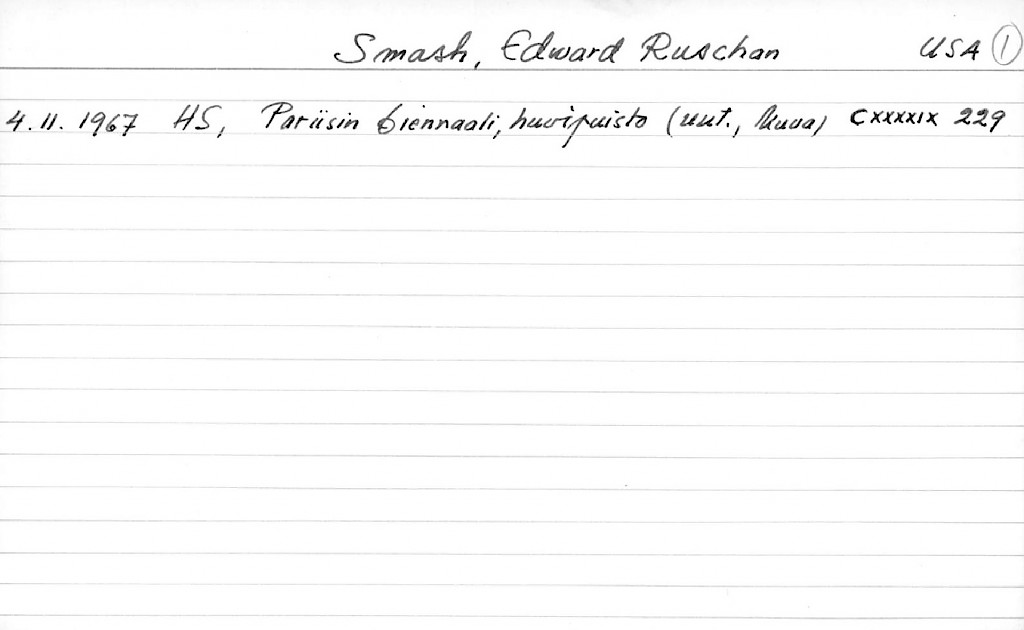 Smash, Edward Ruschan USA 1
4.11.1967 HS, Pariisin biennaali, huvipuisto (uut., kuva) CXXXXIX 229